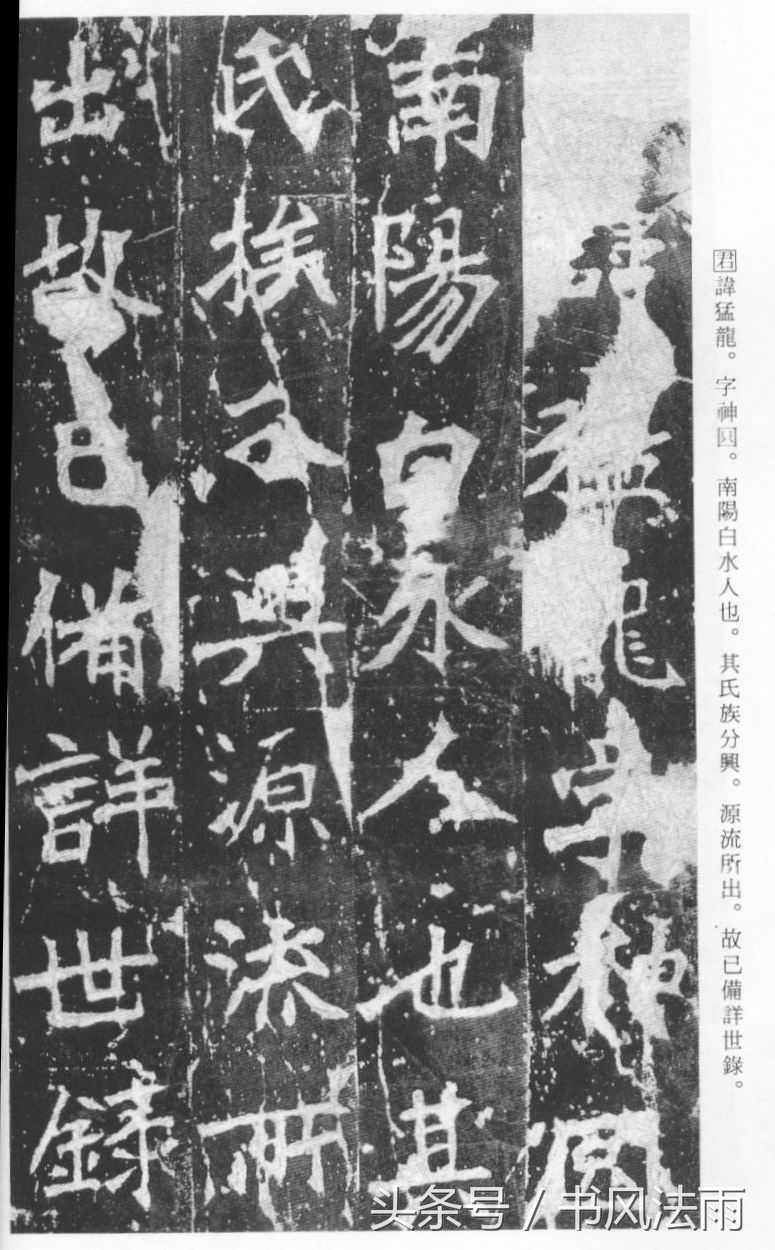 君諱猛龍。字神囧。南陽白水人也。其氏族分興。源流所出。故已備詳世錄。
諱猛龍字神
南陽白水人也其
氏族分興源流所
出故已備詳世錄
头条号 / 书风法雨